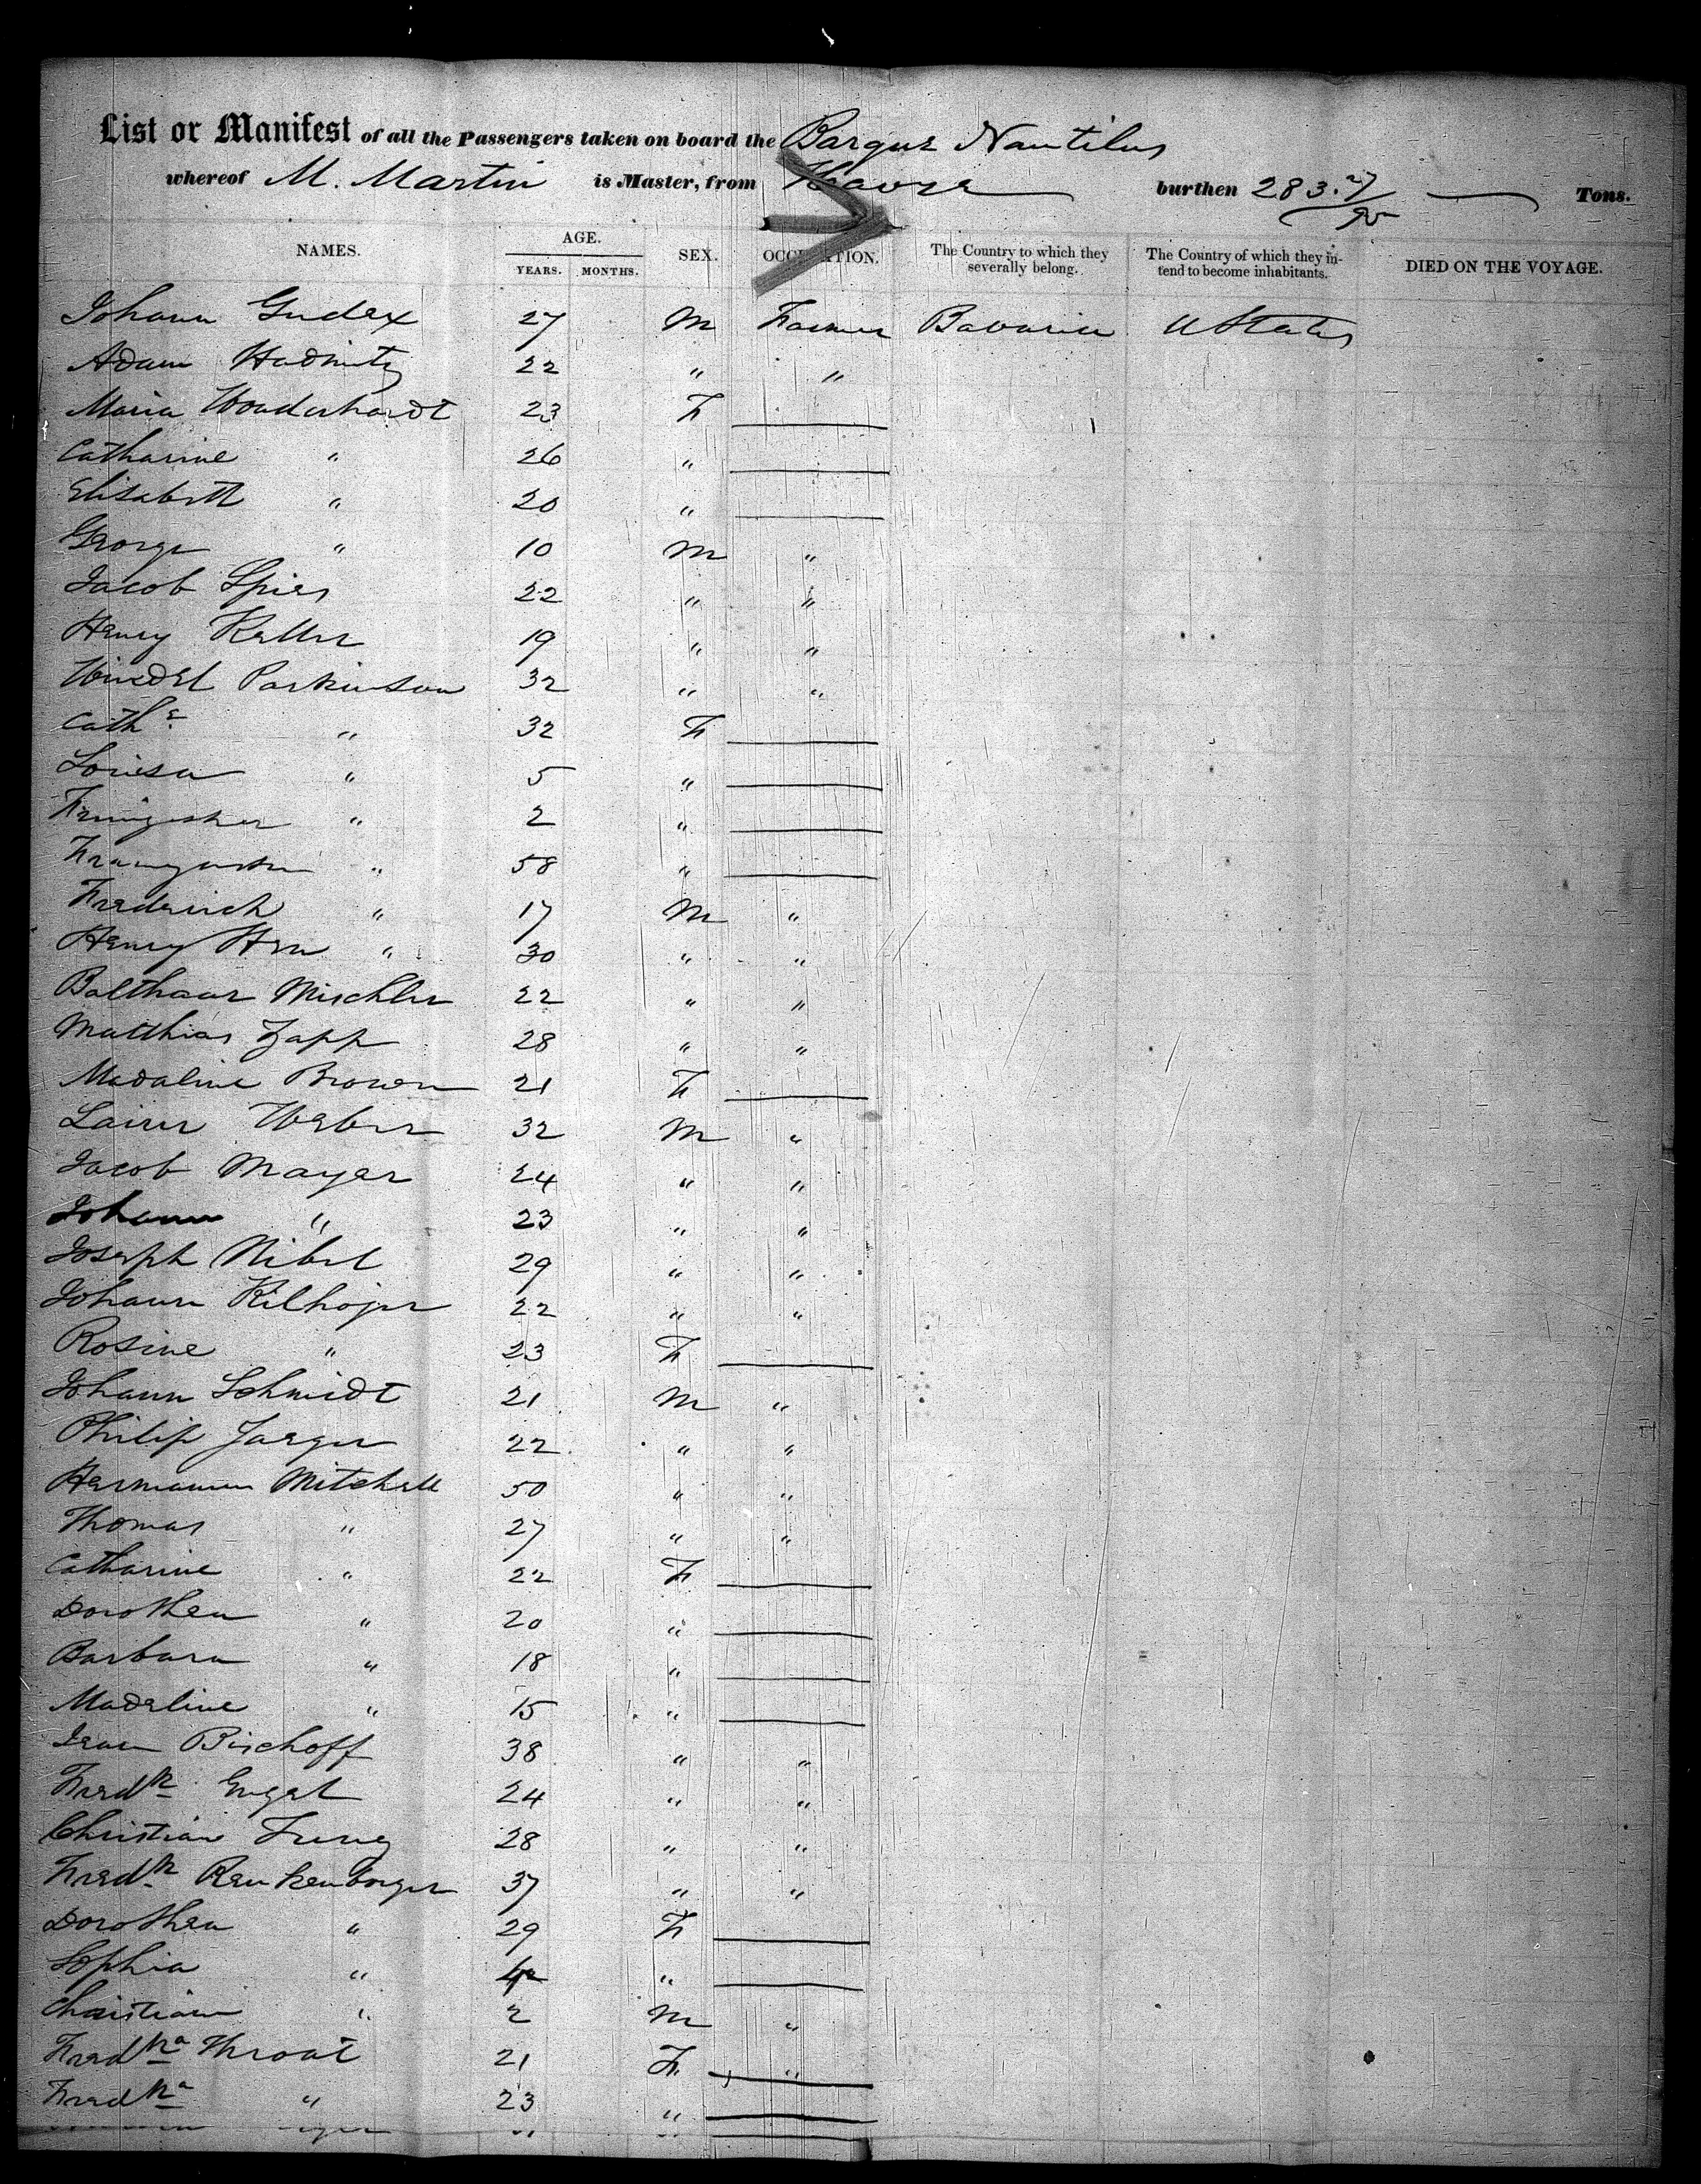 List or Manifest of all the Passengers taken on board the Barque Nautilus
whereof M. Martin is Master, from Havre burthen 283. 27/95 Tons.
NAMES. AGE. YEARS. MONTHS. SEX. OCCUPATION. The Country to which they severally belong. The Country of which they intend to become inhabitants. DIED ON THE VOYAGE.
Johann Gudex 27 M Farmer Bavaria UStates
Adam 22 " "
Maria 23 F
Catharine " 26 "
Elisabeth " 20 "
George " 10 M "
Jacob Spies 22 " "
Henry Keller 19 " "
Windel Parkinson 32 " "
Cathe " 32 F
Louisa " 5 "
" 2 "
" 58 "
Frederich " 17 M "
Henry " 30 " "
Balthasar Mischler 22 " "
Matthias Zapp 28 " "
Madaline Brown 21 F
Weber 32 M "
Jacob Mayer 24 " "
Johann " 23 " "
Joseph Nibel 29 " "
Johann 22 " "
Rosine " 23 F
Johann Schmidt 21 M "
Philip Jaeger 22 " "
Hermann Mitchell 50 " "
Thomas " 27 " "
Catharine " 22 F
Dorothea " 20 "
Barbara " 18 "
Madeline " 15 "
Bischoff 38 " "
Fredk Engel 24 " "
Christian 28 " "
Fredk 37 " "
Dorothea " 29 F
Sophia " 4 "
Christian " 2 M "
Fredka Throat 21 F "
Fredka " 23 "